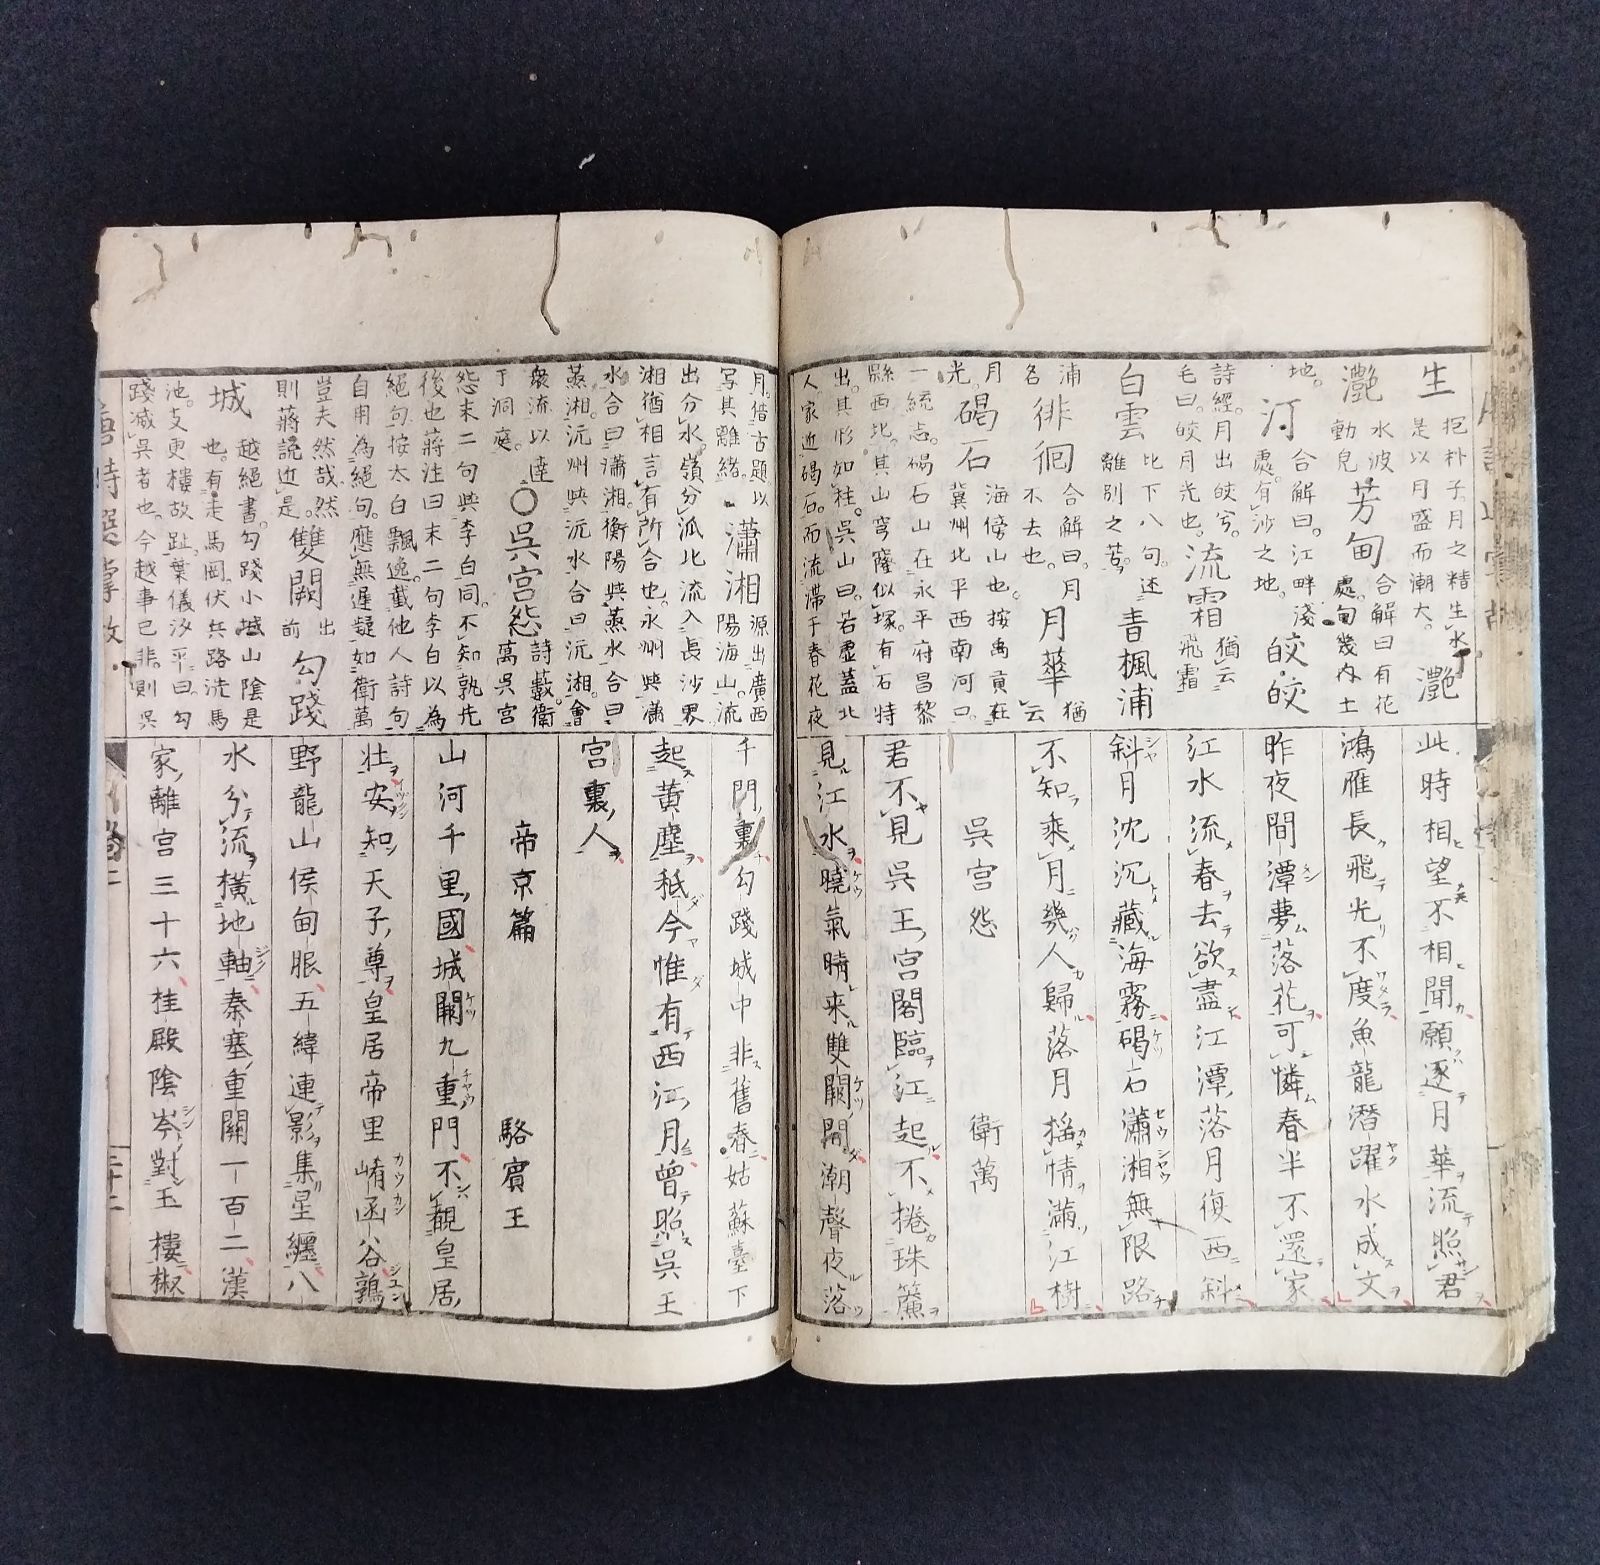 生 抱朴子。月之精生水。是以月盛而潮大。 灔
灔 水波動皃 芳甸 合解曰有花處。甸畿内土
地。 汀 合解曰。江畔淺處。有沙之地。 皎皎
詩經。月出皎兮。毛曰。皎月光也。 流霜 猶云飛霜
白雲 比下八句。述離別之苦。 青楓浦
浦名 徘徊 合解曰。月不去也。 月華 猶云
月光。 碣石 海傍山也。按禹貢在冀州北平西南河口。
一統志。碣石山在永平府昌黎縣西北。其山穹窿似塚。有石特
出。其形如柱。呉山曰。若虚蓋北人家近碣石。而流滞于春花夜
此時相望不相聞願逐月華流照君
鴻雁長飛光不度魚龍潜躍水成文
昨夜間潭夢落花可憐春半不還家
江水流春去欲盡江潭落月復西斜
斜月沈沈藏海霧碣石瀟湘無限路
不知乘月幾人歸落月揺情滿江樹
呉宮怨 衛萬
君不見呉王宮閣臨江起不捲珠簾
見江水曉氣晴来雙闕間潮聲夜落
月。借古題以写其離緒。 瀟湘 源出廣西陽海山。流
出分水嶺分泒北流入長沙界
湘猶相言有所合也。永州與瀟
水合曰瀟湘。衡陽與蒸水合曰
蒸湘。沅州與沅水合曰沅湘。會
衆流以達于洞庭。 〇呉宮怨 詩藪衛萬呉宮
怨末二句與李白同。不知孰先
後也蔣注曰末二句李白以為
絕句按太白飄逸截他人詩句
自用為絕句。應無遅疑如衛萬
豈夫然哉。然則蔣説近是。 雙闕 出前 勾踐
城 越絕書。勾踐小城山陰是也。有走馬岡。伏兵路洗馬
池。支更樓故趾。葉儀汐平曰。勾踐滅呉者也。今越事已非。則呉
千門裏勾踐城中非舊春姑蘇臺下
起黄塵秪今惟有西江月曾照呉王
宮裏人
帝京篇 駱賓王
山河千里國城闕九重門不覩皇居
壮安知天子尊皇居帝里崤函谷鶉
野龍山侯甸服五緯連影集星纒八
水分流横地軸秦塞重關一百二漢
家離宮三十六桂殿陰岑對玉樓椒